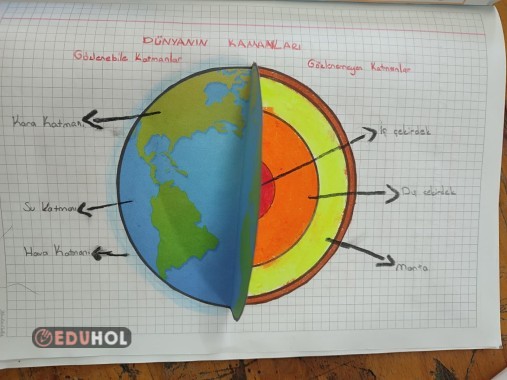 DÜNYANIN KATMANLARI
Gözlenebile Katmanlar
Gözlenemeyen Katmanlar
Kara Katmanı
Su Katmanı
Hava Katmanı
İç çekirdek
Dış çekirdek
Manto
EDUHOL